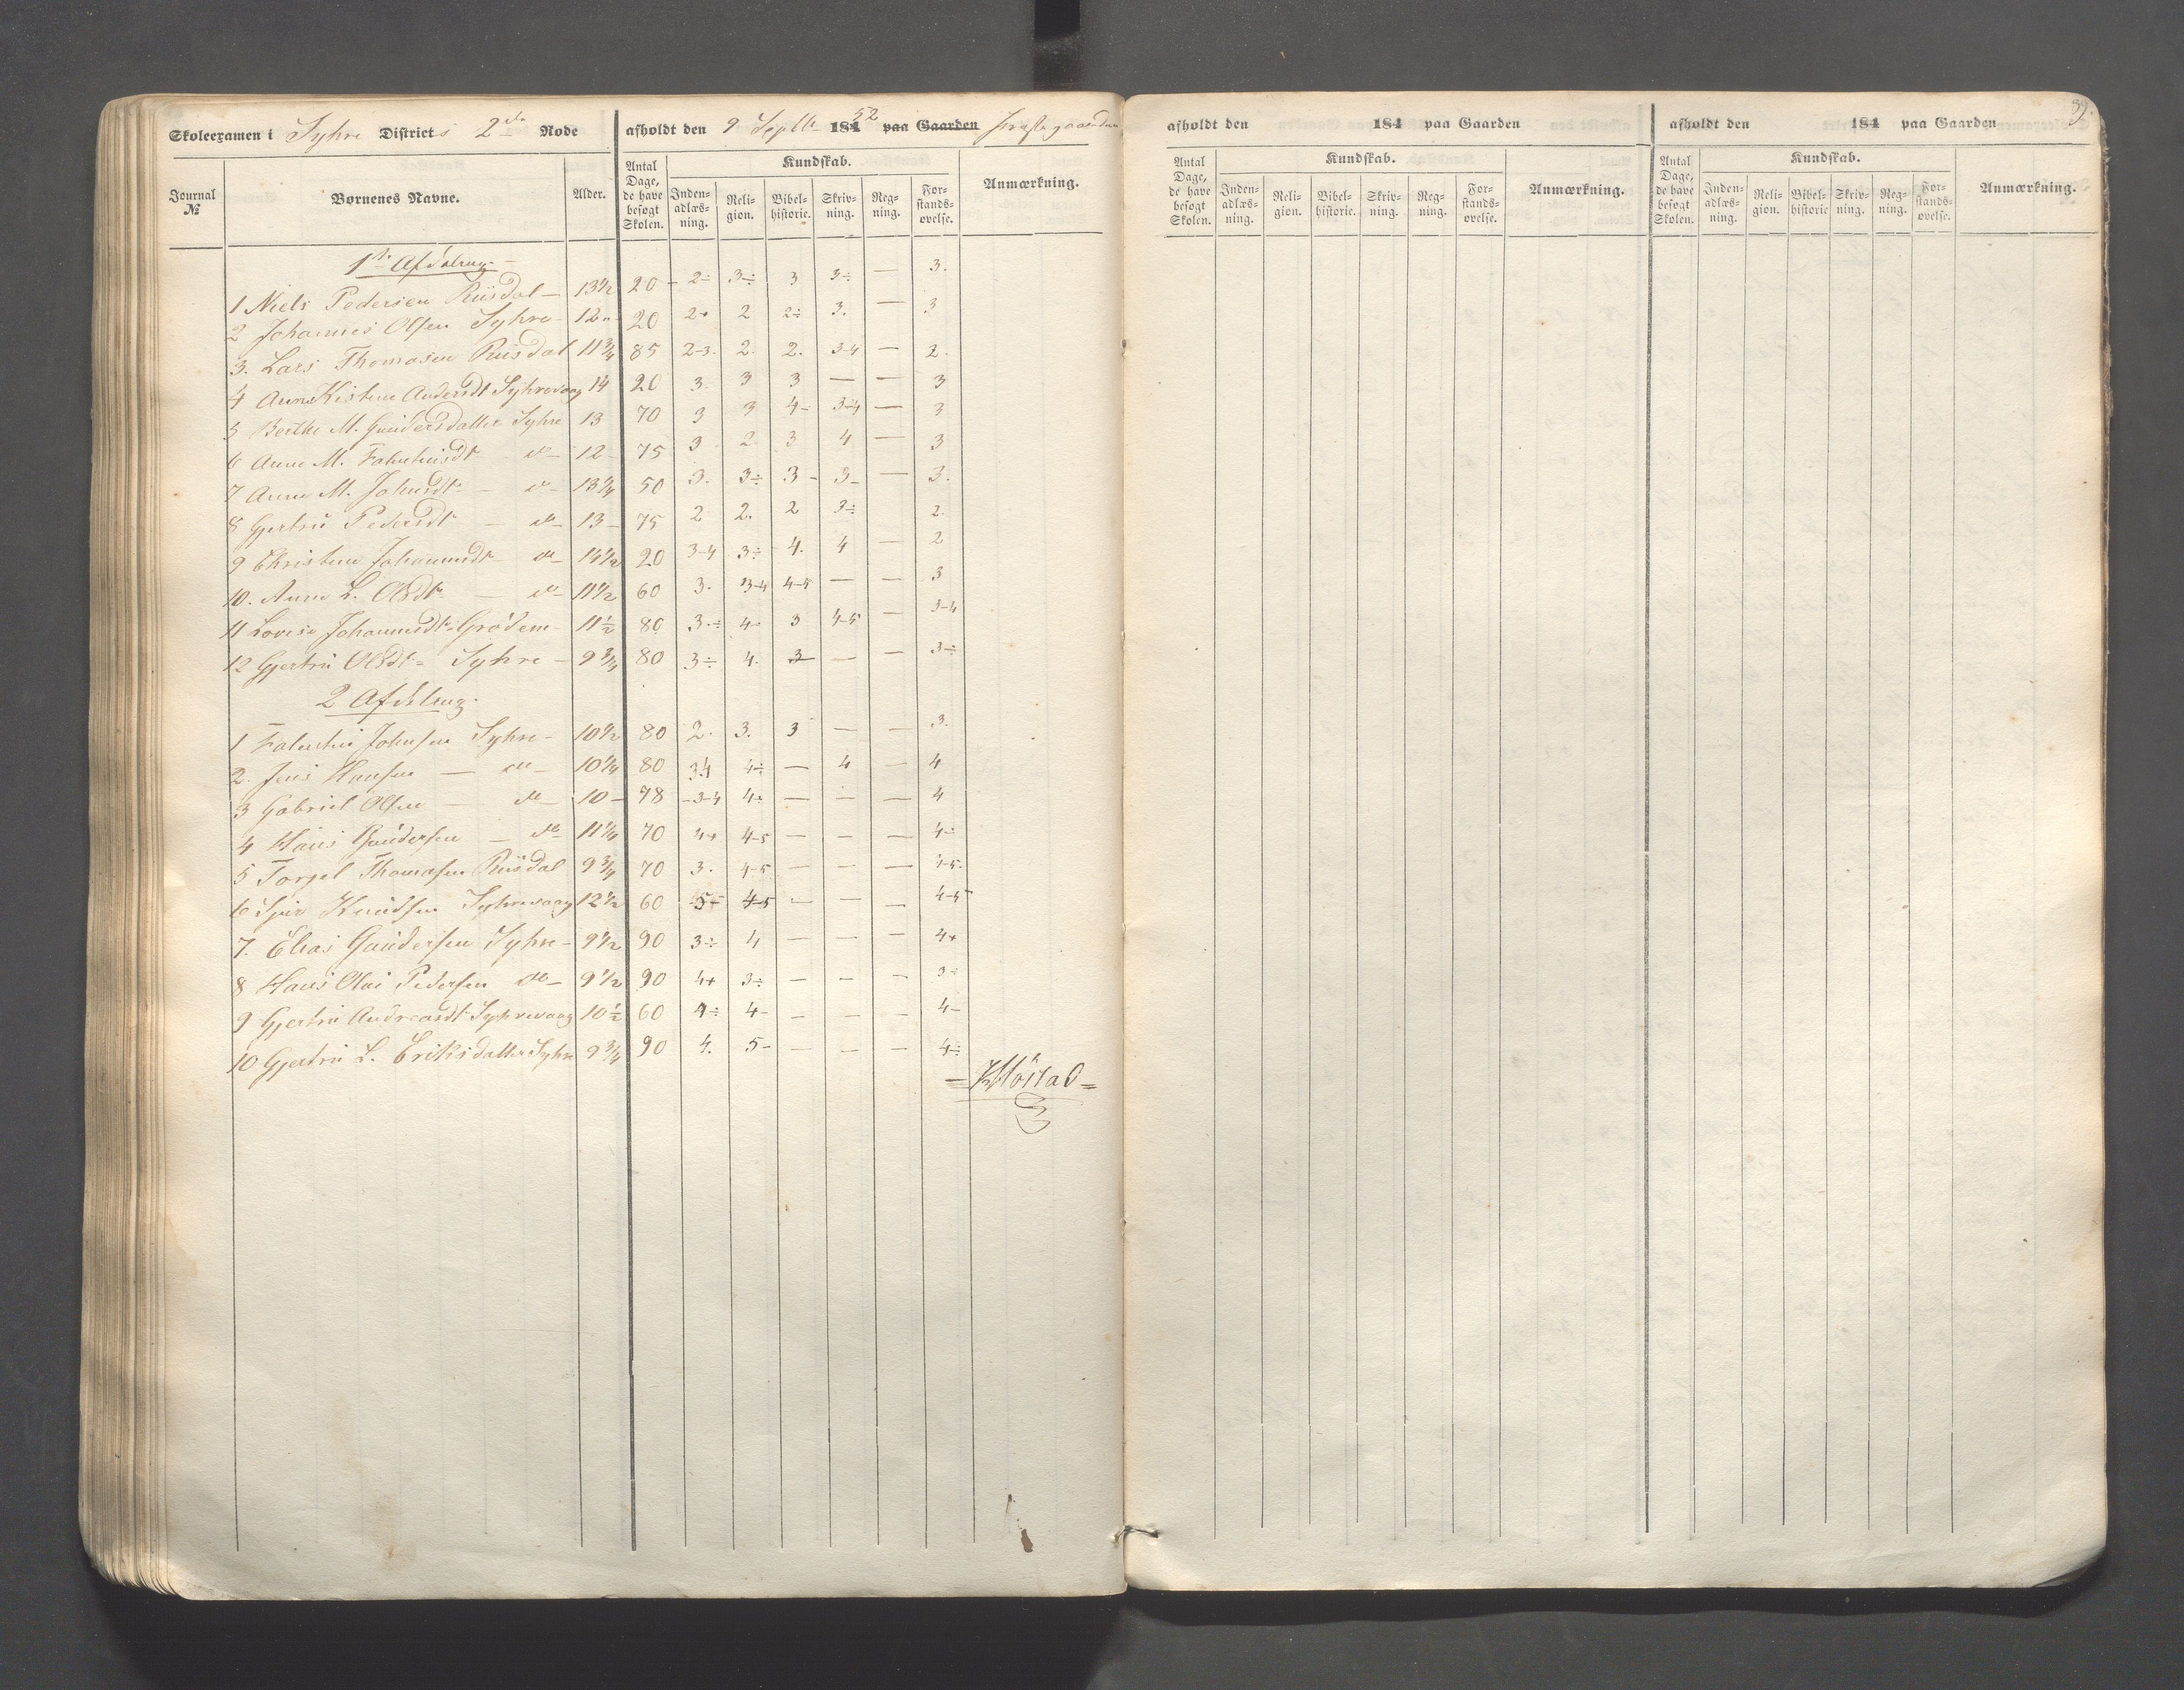 Skoleexamen i Syhre Districts 2de Rode afholdt den 9 Septbr 1852 paa Gaarden Prestegaarden
Journal № Børnenes Navne. Alder. Antal Dage, de have besøgt Skolen. Kundskab. Inden-adlæs-ning. Reli-gion. Bibel-historie. Skriv-ning. Reg-ning. For-stands-øvelse. Anmærkning.
1ste Afdeling
1 Niels Pedersen Riisdal – 13 1/2 20 – 2÷ 3÷ 3 3÷ — 3.
2 Johannes Olsen Syhre – 12 20 2+ 2 2÷ 3. — 3
3. Lars Thomasen Riisdal 11 3/4 85 2-3. 2. 2. 3-4 — 2.
4 Anne Kistine Andersdt Syhrevaag 14 20 3. 3 3 — — 3
5 Berthe M. Gundersdatter Syhre 13 70 3 3 4- 3-4 — 3
6 Anne M. Falentinsdt do – 12 – 75 3 2 3 4 — 3
7 Anne M. Johnsdt – do – 13 3/4 50 3. 3÷ 3 – 3 – — 3.
8 Gjertru Pedersdt – do – 13 – 75 2 2. 2 3÷ 2.
9 Christine Johannesdt do – 14 1/2 20 3-4 3÷ 4. 4 — 2
10. Anne L. Olsdt – do – 11 1/2 60 3. 3-4 4-5 — — 3
11 Lovise Johannesdt Grödem – 11 1/2 80 3÷ 4- 3 4-5 — 3-4
12 Gjertru Olsdt Syhre – 9 3/4 80 3÷ 4. 3 — — 3÷
2 Afdeling.
1 Falentin Johnsen Syhre – 10 1/2 80 2. 3. 3 — — 3.
2. Jens Hansen — do – 10 3/4 80 3.4 4÷ — 4 — 4
3 Gabriel Olsen – do – 10 – 78 – 3-4 4÷ — — — 4
4 Hans Gundersen – do 11 1/4 70 4+ 4-5 — — — 4÷
5 Torgel Thomasen Riisdal 9 3/4 70 3. 4-5 — — — 4-5.
6 Knudsen Syhrevaag 12 1/2 60 4-5 — — — 4-5
7. Elias Gundersen Syhre – 9 1/2 90 3÷ 4 — — — 4+
8 Hans Olai Pedersen do – 9 1/2 90 4+ 3÷ — — 3÷
9 Gjertru Andreasdt Syhrevaag 10 1/2 60 4÷ 4- — — — 4-
10 Gjertru L. Eriksdatter Syhre 9 3/4 90 4. 5- — — — 4÷
afholdt den 184 paa Gaarden
Antal Dage, de have besøgt Skolen. Kundskab. Inden-adlæs-ning. Reli-gion. Bibel-historie. Skriv-ning. Reg-ning. For-stands-øvelse. Anmærkning.
afholdt den 184 paa Gaarden
89.
Antal Dage, de have besøgt Skolen. Kundskab. Inden-adlæs-ning. Reli-gion. Bibel-historie Skriv-ning. Reg-ning. For-stands-øvelse. Anmærkning.